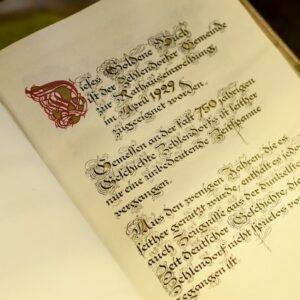 Dieses Goldene Buch
ist der Zehlendorfer Gemeinde
zur Rathauseinweihung
im April 1929
zugeeignet worden.
Gemessen an der fast 750 jährigen
Geschichte Zehlendorfs ist seither
nur eine unbedeutende Zeitspanne
vergangen.
Aus den wenigen Zeilen, die es
seither genutzt wurde, enthält es jedoch
auch Zeugnisse aus der dunkelsten
Zeit deutscher Geschichte, die
Zehlendorf nicht spurlos
vergangen ist.